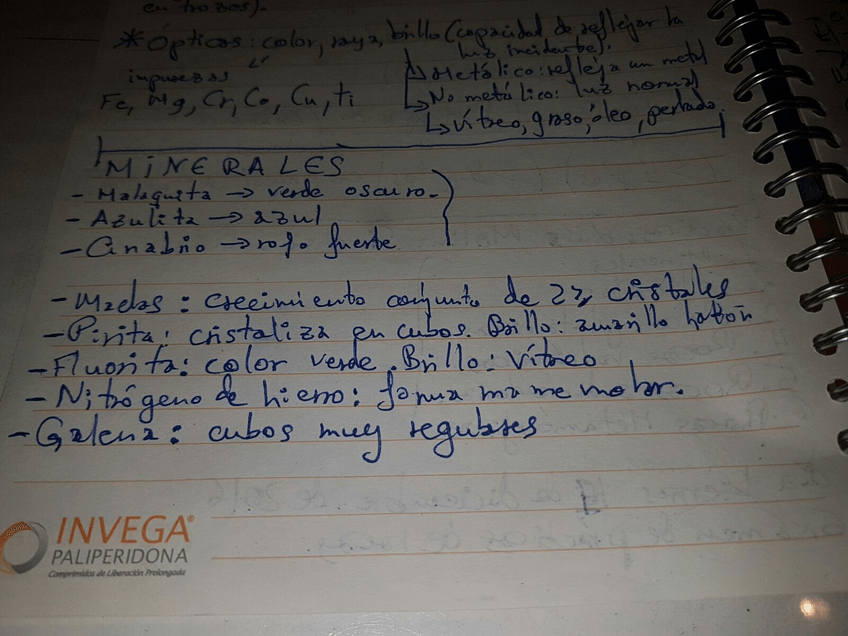 en trozos).
* Ópticas: color, raya, brillo (capacidad de reflejar la
luz incidente).
impurezas
Fe, Mg, Cr, Co, Cu, Ti
↳ Metálico: refleja un metal
↳ No metálico: luz normal
↳ vítreo, graso, óleo, perlado.
MINERALES
- Malaquita → verde oscuro.
- Azulita → azul
- Cinabrio → rojo fuerte
- Maclas: crecimiento conjunto de cristales
- Pirita: cristaliza en cubos. Brillo: amarillo
- Fluorita: color verde. Brillo: Vítreo
- Nitrógeno de hierro: forma mamemolar.
- Galena: cubos muy regulares
INVEGA®
PALIPERIDONA
Comprimidos de Liberación Prolongada